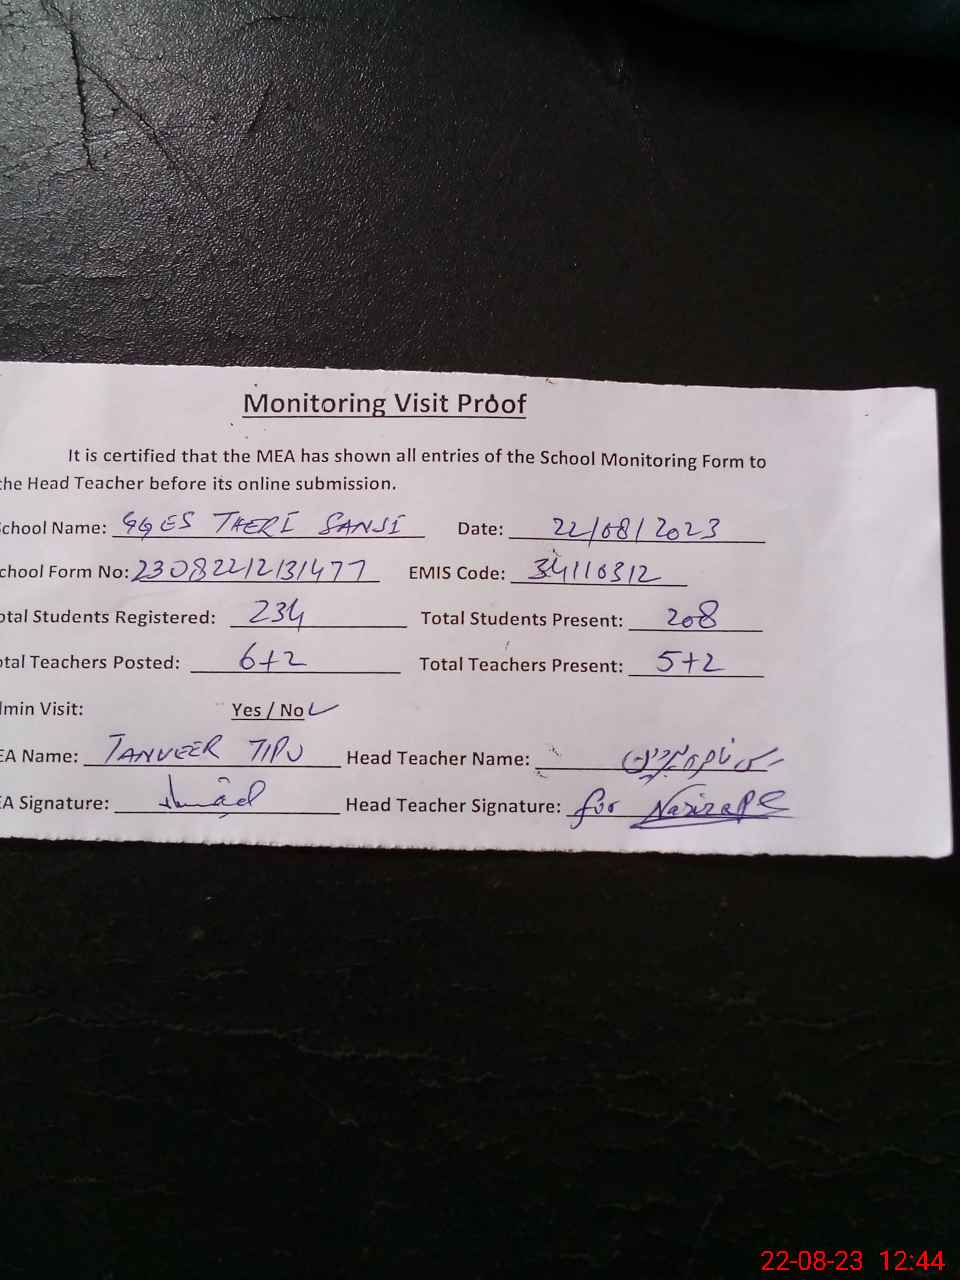 Monitoring Visit Proof
It is certified that the MEA has shown all entries of the School Monitoring Form to
the Head Teacher before its online submission.
School Name: GGES THERI SANSI Date: 22/08/2023
School Form No: 230822/2131477 EMIS Code: 34110312
Total Students Registered: 234 Total Students Present: 208
Total Teachers Posted: 6+2 Total Teachers Present: 5+2
Admin Visit: Yes / No ✓
MEA Name: TANVEER TIPU Head Teacher Name:
MEA Signature: Head Teacher Signature: for
22-08-23 12:44